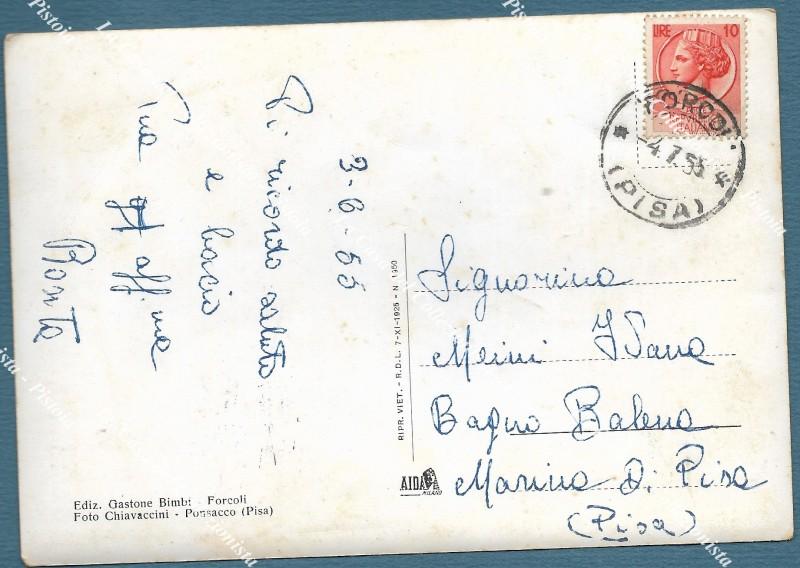 3-6-55
Ti ricordo saluto
e bacio
Tua aff affma
LIRE 10
FORCOLI
4.7.55
(PISA)
Signorina
Meini Ivana
Bagno Balena
Marina Di Pisa
(Pisa)
RIPR. VIET. - R.D.L. 7-XI-1925 - N. 1950
AIDA
MILANO
Ediz. Gastone Bimbi - Forcoli
Foto Chiavaccini - Ponsacco (Pisa)